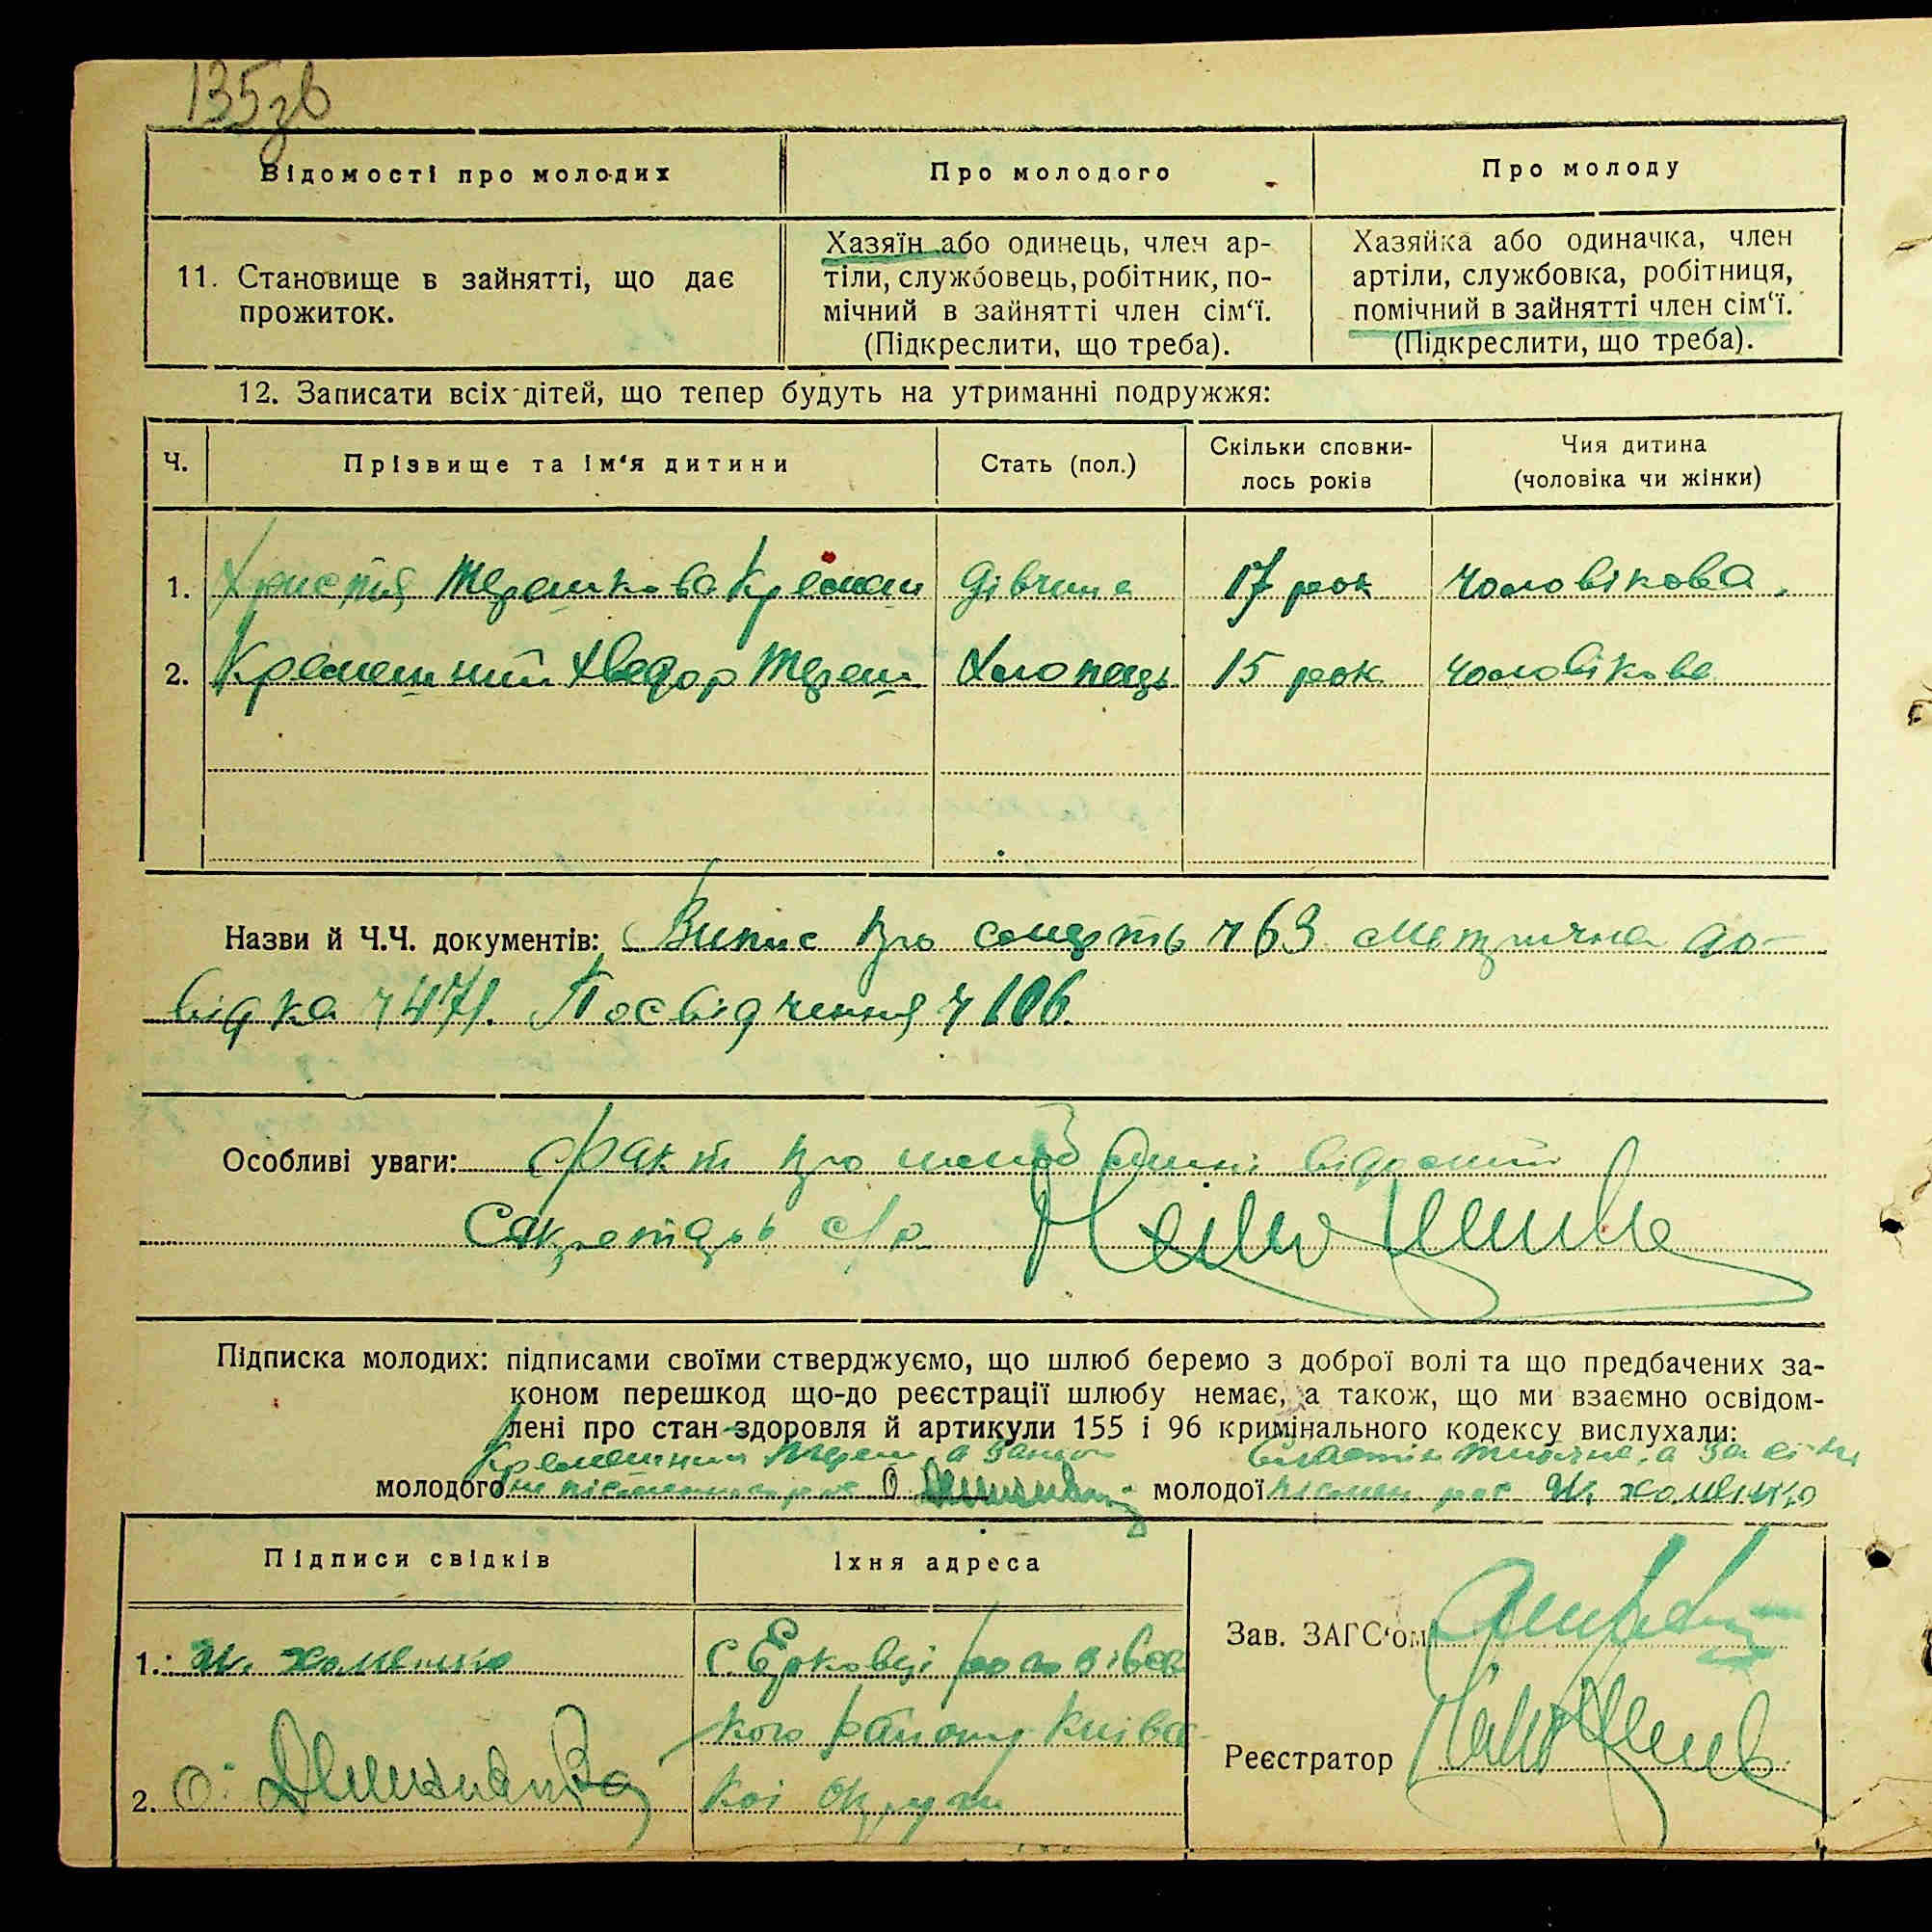 135зв
Відомості про молодих
Про молодого
Про молоду
11. Становище в зайнятті, що дає
прожиток.
Хазяїн або одинець, член ар-
тіли, службовець, робітник, по-
мічний в зайнятті член сім‘ї.
(Підкреслити, що треба).
Хазяйка або одиначка, член
артіли, службовка, робітниця,
помічний в зайнятті член сім‘ї.
(Підкреслити, що треба).
12. Записати всіх дітей, що тепер будуть на утриманні подружжя:
Ч.
Прізвище та ім‘я дитини
Стать (пол.)
Скільки сповни-
лось років
Чия дитина
(чоловіка чи жінки)
1. Христя Терешкова Кремен дівчина 17 рок чоловікова.
2. Кременний Хведор Тереш Хлопець 15 рок чоловікова
Назви й Ч.Ч. документів: Випис про смерть ч 63 метрична до-
відка ч 471. Посвідчення ч 106.
Особливі уваги: Факт про шлюб
Секретарь с/р
Підписка молодих: підписами своїми стверджуємо, що шлюб беремо з доброї волі та що предбачених за-
коном перешкод що-до реєстрації шлюбу немає, а також, що ми взаємно освідом-
лені про стан здоровля й артикули 155 і 96 кримінального кодексу вислухали:
Кременний Тереш а за
молодого О
молодої Хоменко
Підписи свідків
Їхня адреса
1. Хоменко
с. Ерковці
кого району Київсь-
кої округи
2. О.
Зав. ЗАГС‘ом
Реєстратор